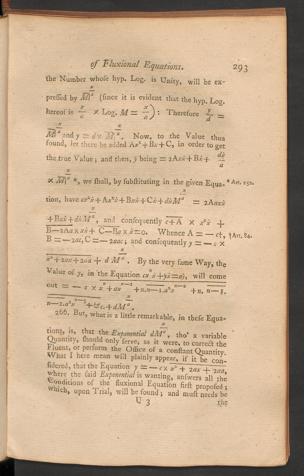 of Fluxional Equations. 293
the Number whose hyp. Log. is Unity, will be ex-
pressed by M^{x/a} (since it is evident that the hyp. Log.
hereof is x/a × Log. M = x/a): Therefore y/d =
M^{x/a} and y = d × M^{x/a}. Now, to the Value thus
found, let there be added Ax²+Bx+C, in order to get
the true Value; and then, ẏ being = 2Axẋ+Bẋ+ dẋ/a
× M^{x/a} *, we shall, by substituting in the given Equa- * Art. 252.
tion, have
and consequently
Whence A = −c†, † Art. 84.
B = −2ac, C = −2aac; and consequently y = −c ×
x²+2ax+2aa + d M^{x/a}. By the very same Way, the
Value of y, in the Equation cxⁿẋ+yẋ=aẏ, will come
out = −c ×
266. But, what is a little remarkable, in these Equa-
tions, is, that the Exponential dM^{x/a}, tho' a variable
Quantity, should only serve, as it were, to correct the
Fluent, or perform the Office of a constant Quantity.
What I here mean will plainly appear, if it be con-
sidered, that the Equation y = −c × x² + 2ax + 2aa,
where the said Exponential is wanting, answers all the
Conditions of the fluxional Equation first proposed;
which, upon Trial, will be found; and must needs be
U 3